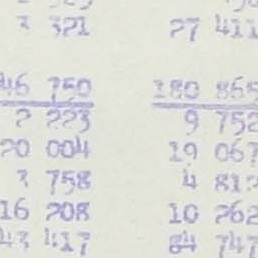 3 321 27 411
46 750 180 865
2 223 9 752
20 004 19 067
3 758 4 812
16 208 10 262
43 417 84 747